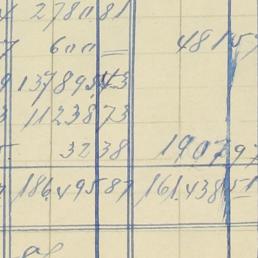 2780 81
600 = 481 57
137895 43
11238 73
32 38 1907 97
186.495 87 161.438 51